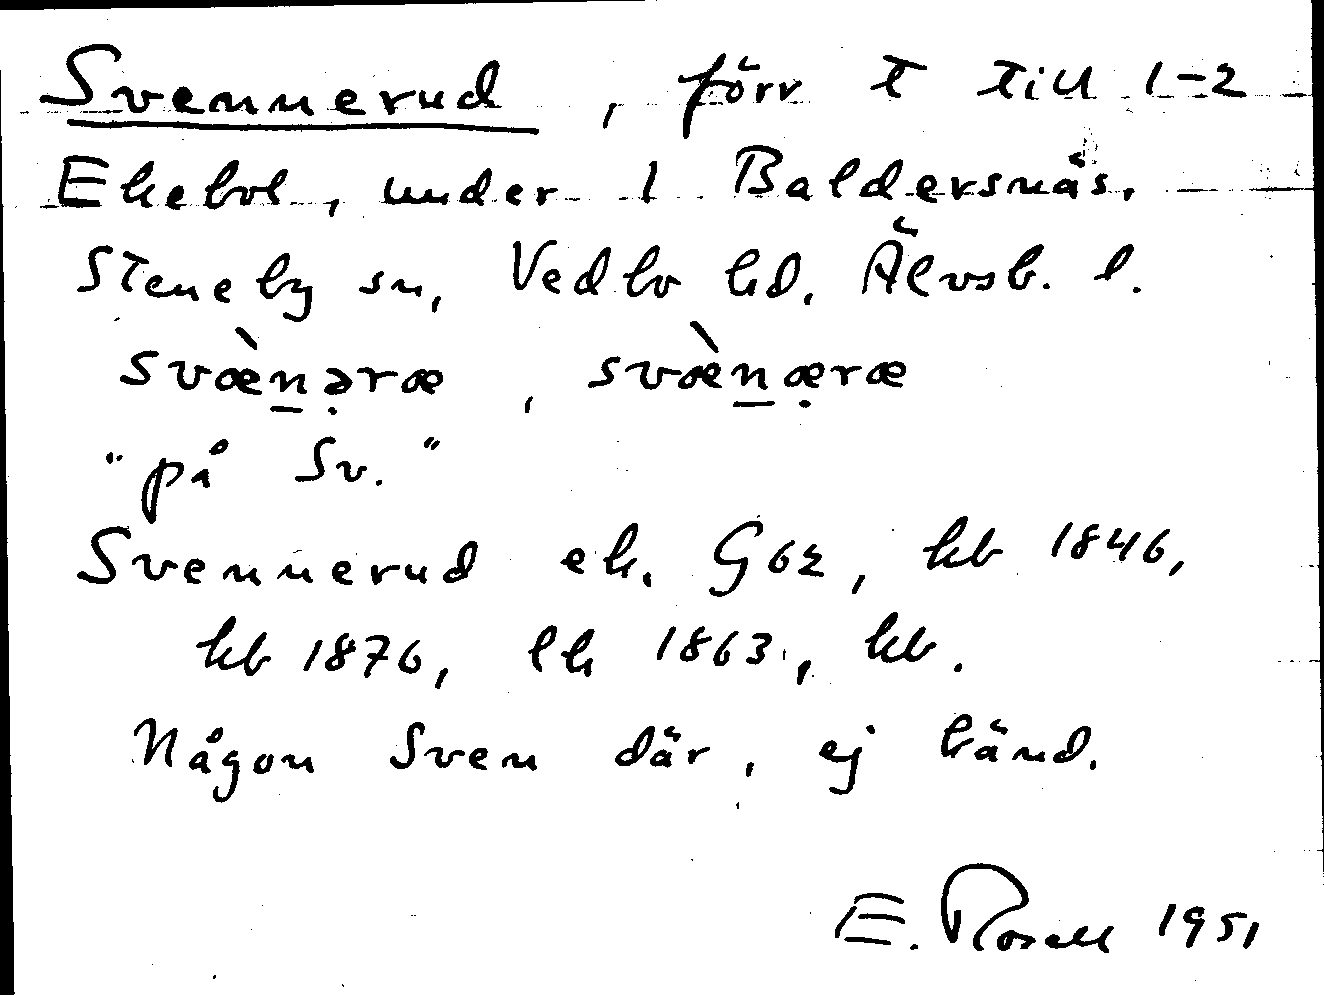 Svennerud, förr t till 1-2
Ekebol, under 1 Baldersnäs,
Steneby sn, Vedbo hd. Älvsb. l.
svæ̀n̲ə̣ræ, svæ̀n̲æ̣ræ
"på Sv."
Svennerud ek. G62, kb 1846,
kb 1876, lh 1863, kb.
Någon Sven där, ej känd.
E. Rosell 1951